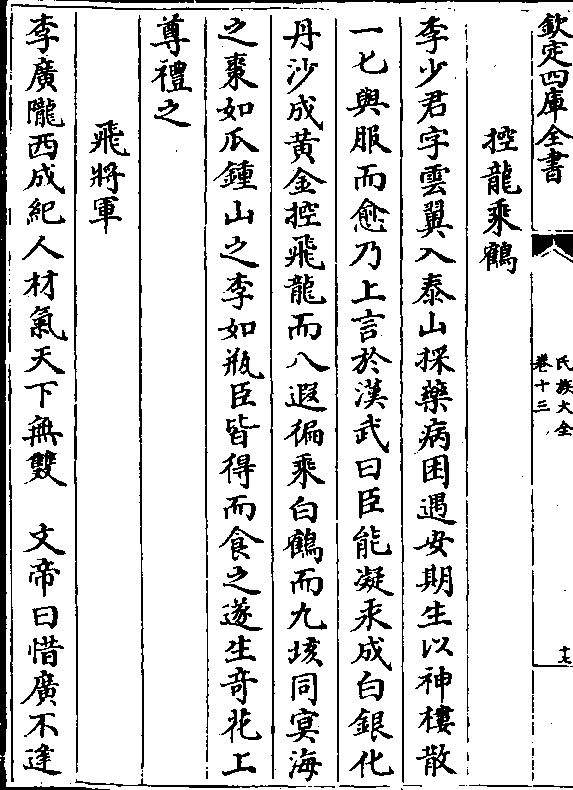 欽定四庫全書
氏族大全
卷十三
十七
控龍乘鶴
李少君字雲翼入泰山採藥病困遇安期生以神樓散
一匕與服而愈乃上言於漢武曰臣能凝汞成白銀化
丹沙成黃金控飛龍而八遐徧乘白鶴而九垓同㝠海
之棗如瓜鍾山之李如瓶臣皆得而食之遂生奇花上
尊禮之
飛將軍
李廣隴西成紀人材氣天下無雙　文帝曰惜廣不逢